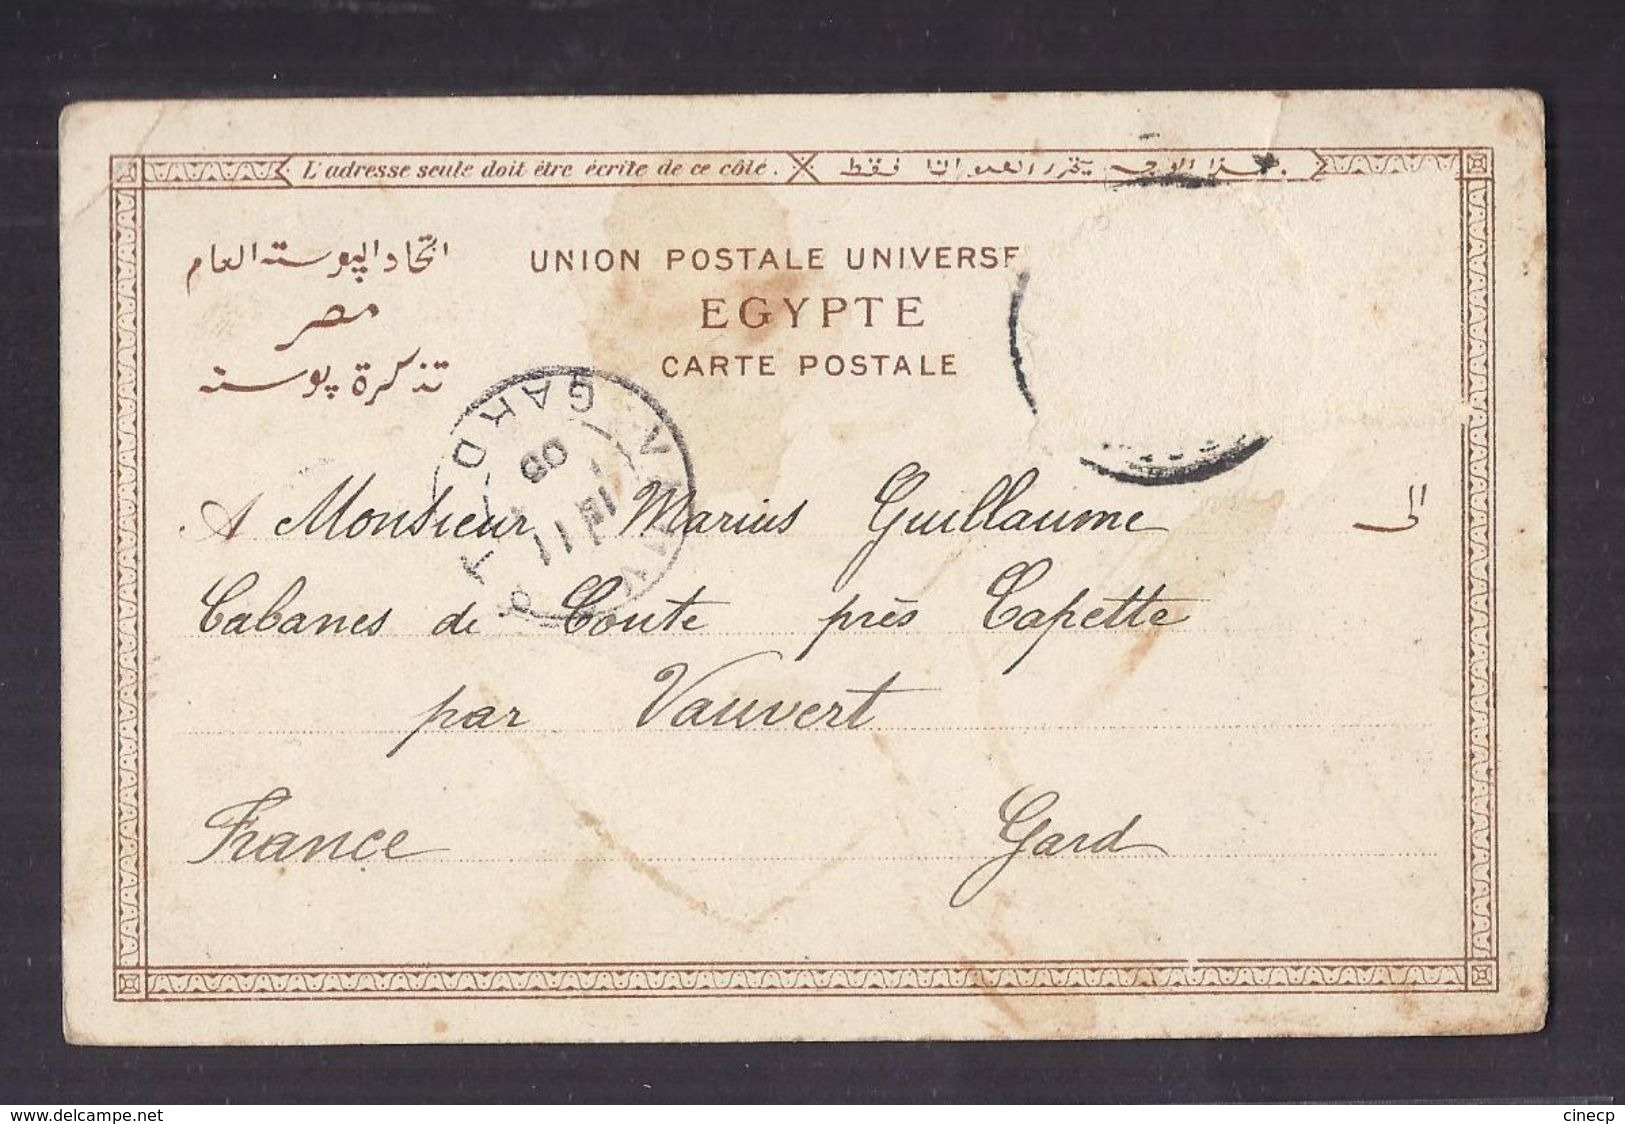 L'adresse seule doit être écrite de ce côté.
هذا الوجه يتحرر العنوان فقط
اتحاد البوسته العام
مصر
تذكرة بوسته
UNION POSTALE UNIVERSE
EGYPTE
CARTE POSTALE
GARD
A Monsieur Marius Guillaume الى
Cabanes de Conte près Capette
par Vauvert
France Gard
www.delcampe.net
cinecp